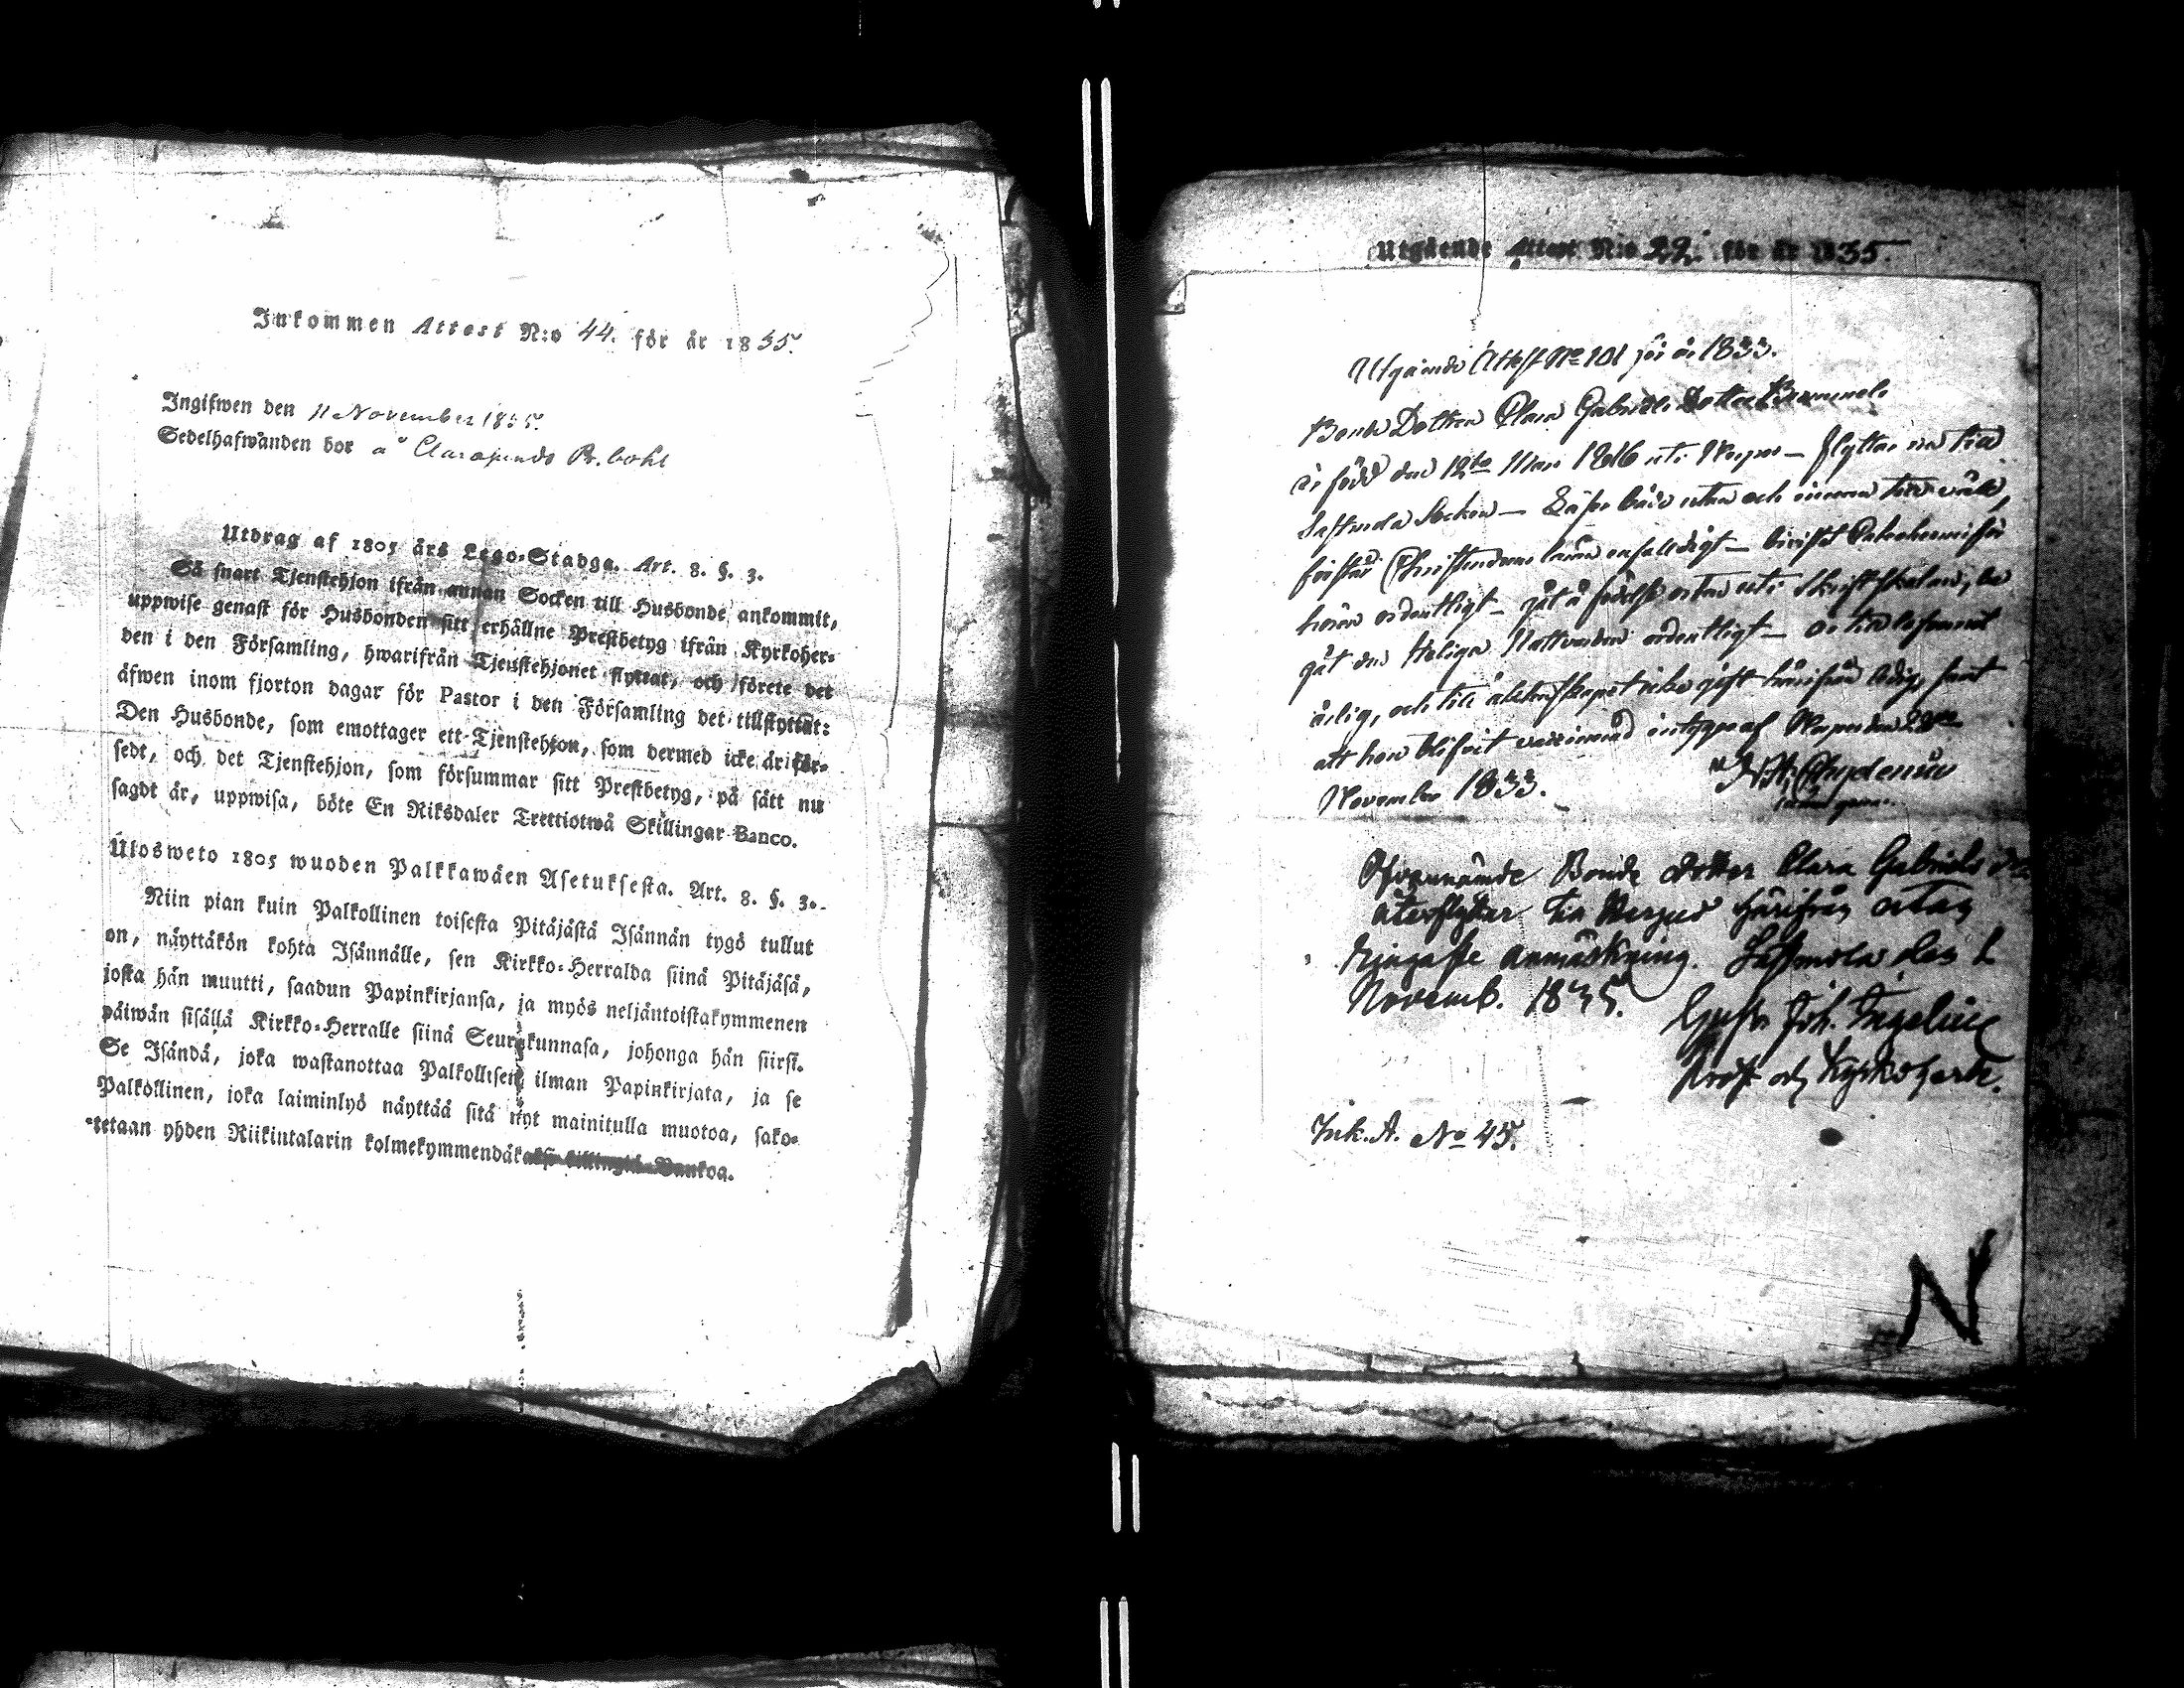 Inkommen Attest N:o 44. för år 1835.
Ingifwen den 11 November 1835.
Sedelhafwanden bor å Clarasunds Br. bohl
Utdrag af 1805 års Lego-Stadga. Art. 8. §. 3.
Så snart Tjenstehjon ifrån annan Socken till Husbonde ankommit,
uppwise genast för Husbonden sitt erhållne Prestbetyg ifrån Kyrkoher-
den i den Församling, hwarifrån Tjenstehjonet flyttat, och förete det
äfwen inom fjorton dagar för Pastor i den Församling det tillflyttat:
Den Husbonde, som emottager ett Tjenstehjon, som dermed icke är för-
sedt, och det Tjenstehjon, som försummar sitt Prestbetyg, på sätt nu
sagdt är, uppwisa, böte En Riksdaler Trettiotwå Skillingar Banco.
Ulosweto 1805 wuoden Palkkawäen Asetuksesta. Art. 8. §. 3.
Niin pian kuin Palkollinen toisesta Pitäjästä Isännän tygö tullut
on, näyttäkön kohta Isännälle, sen Kirkko-Herralda siinä Pitäjäsä,
josta hän muutti, saadun Papinkirjansa, ja myös neljäntoistakymmenen
päiwän sisällä Kirkko-Herralle siinä Seurakunnasa, johonga hän siirsi.
Se Isändä, joka wastanottaa Palkollisen ilman Papinkirjata, ja se
Palkollinen, joka laiminlyö näyttää sitä nyt mainitulla muotoa, sako-
tetaan yhden Riikintalarin kolmekymmendäkaksi killingiä Bankoa.
Utgående Attest N:o 22. för år 1835.
Utgående Attest No 101 för år 1833.
Bonde Dottren Clara Gabriels Dotter
är född den 12te Mars 1816 uti - flyttar nu till
Socken - Läser både utan och innan till wäll,
förstår Christendoms läran enfaldigt - bivistat
hören ordentligt - gått å födelse orten uti Skriftskolan, be
gått den Heliga Nattvarden ordentligt - är
ärlig, och till äktenskapet icke gift härifrån ledig, samt
att hon blifvit vaccinerad intygas af den 22
November 1833. Chydenius
Ofvannämde Bonde dotter Clara Gabriels
återflyttar till härifrån utan
ringaste anmärkning. den 1
Novemb. 1835.
Gust. Joh. Ingelius
Prost och Kyrkoherde.
Ink. A. No 45.
N